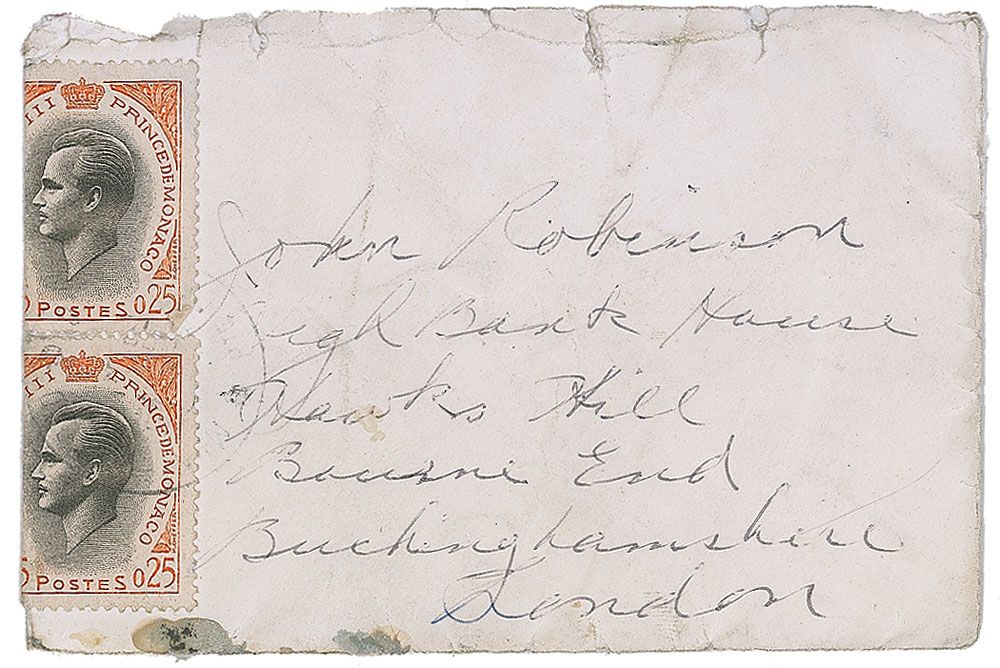 III PRINCE DE MONACO
POSTES 025
III PRINCE DE MONACO
POSTES 025
John Robinson
High Bank House
Hawks Hill
Bourne End
Buckinghamshire
London